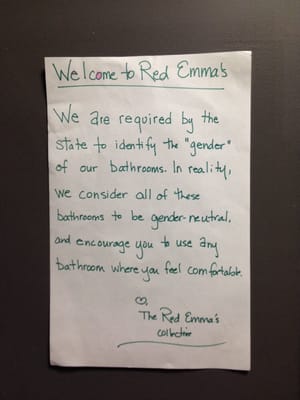 Welcome to Red Emma's
We are required by the
state to identify the "gender"
of our bathrooms. In reality,
we consider all of these
bathrooms to be gender-neutral,
and encourage you to use any
bathroom where you feel comfortable.
♡,
The Red Emma's
collective